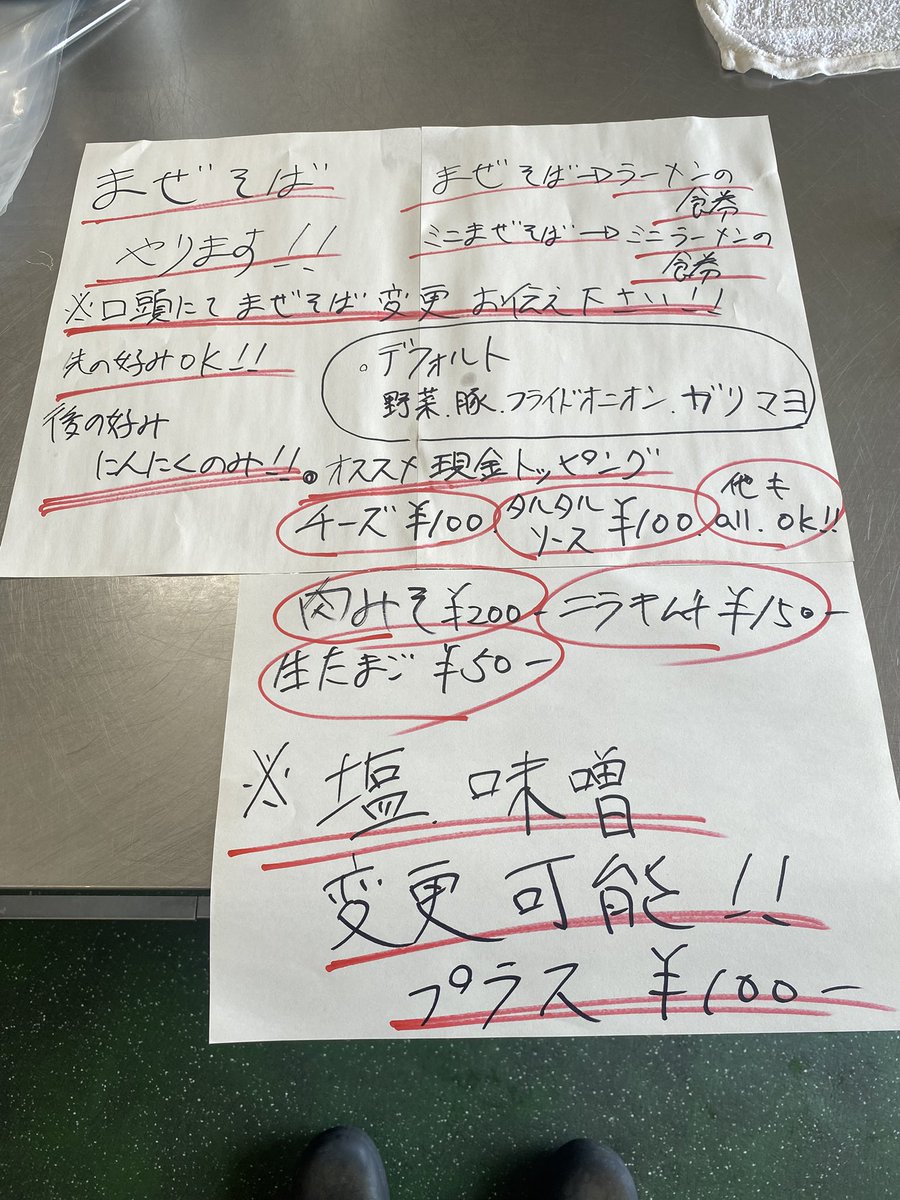 まぜそば
やります!!
まぜそば→ラーメンの
食券
ミニまぜそば→ミニラーメンの
食券
※口頭にてまぜそば変更お伝え下さい!!
先の好みok!!
後の好み
にんにくのみ!!
。デフォルト
野菜.豚.フライドオニオン.ガリマヨ
。オススメ現金トッピング
チーズ¥100
タルタル
ソース ¥100
他も
all.ok!!
肉みそ¥200-
ニラキムチ¥150-
生たまご ¥50-
※塩.味噌
変更可能!!
プラス ¥100-